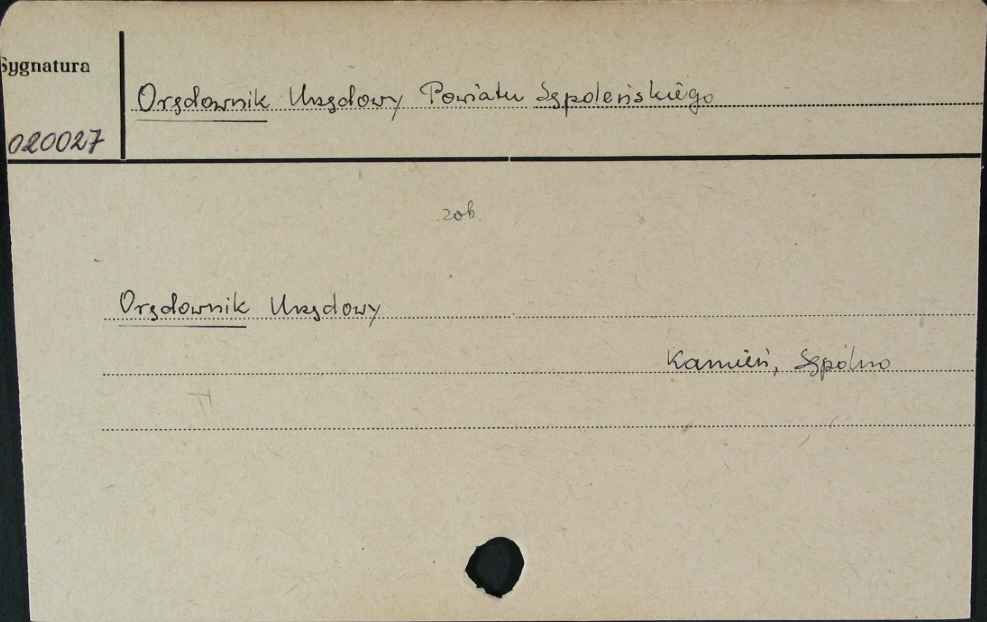 Sygnatura
Orędownik Urzędowy Powiatu Sępoleńskiego
020027
zob
Orędownik Urzędowy
Kamień, Sępólno